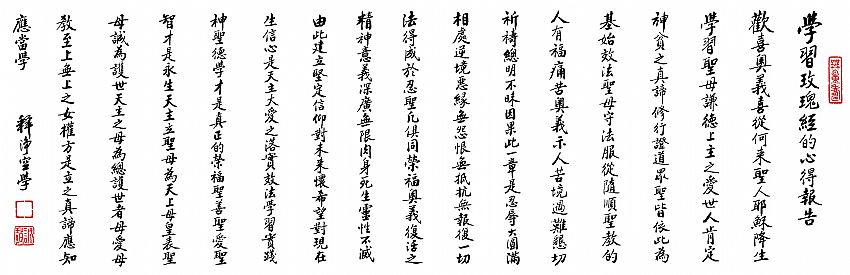 學習玫瑰經的心得報告
歡喜奧義喜從何來聖人耶穌降生
學習聖母謙德上主之愛世人肯定
神貧之真諦修行證道眾聖皆依此為
基始效法聖母守法服從隨順聖教的
人有福痛苦奧義示人苦境過難懇切
祈禱總明不昧因果此一章是忍辱大圓滿
相處逆境惡緣無怨恨無抵抗無報復一切
法得成於忍聖凡俱同榮福奧義復活之
精神意義深廣無限肉身死生靈性不滅
由此建立堅定信仰對未來懷希望對現在
生信心是天主大愛之落實效法學習實踐
神聖德學才是真正的榮福聖善聖愛聖
智才是永生天主立聖母為天上母皇表聖
母誠為護世天主之母為總護世者母愛母
教至上無上之女權方是立之真諦應知
應當學
釋淨空學